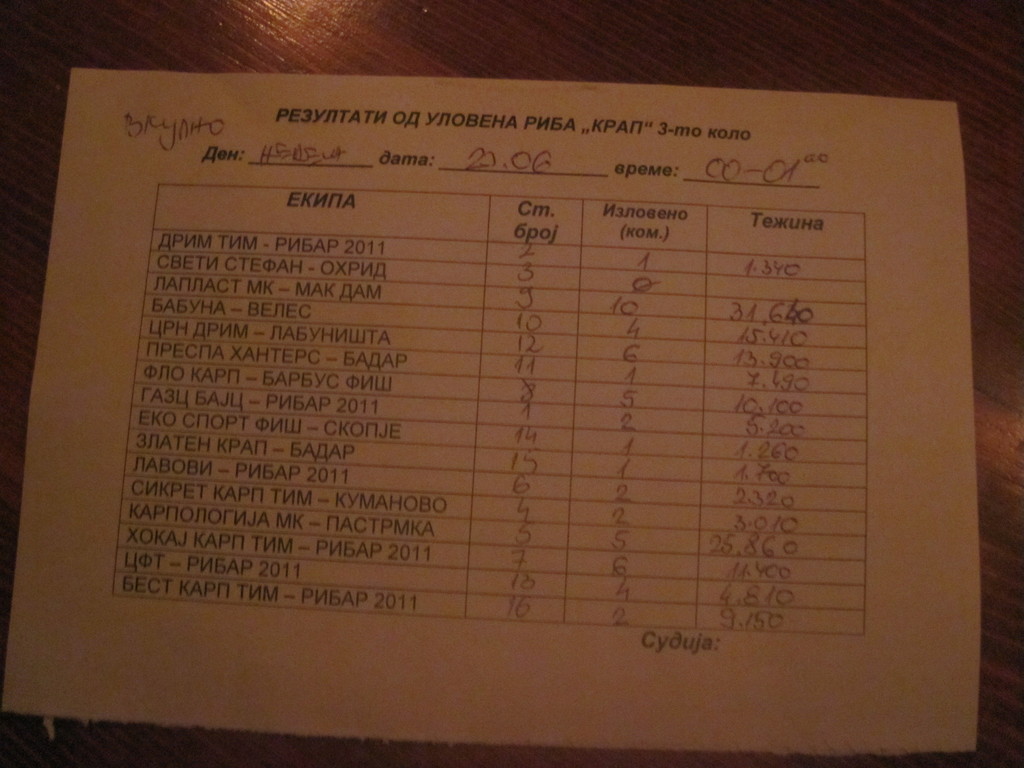 Вкупно
РЕЗУЛТАТИ ОД УЛОВЕНА РИБА „КРАП“ 3-то коло
Ден: НЕДЕЛА дата: 23.06 време: 00-01⁰⁰
ЕКИПА Ст. број Изловено (ком.) Тежина
ДРИМ ТИМ - РИБАР 2011 2 1 1.340
СВЕТИ СТЕФАН - ОХРИД 3 0
ЛАПЛАСТ МК – МАК ДАМ 9 10 31.640
БАБУНА – ВЕЛЕС 10 4 15.410
ЦРН ДРИМ – ЛАБУНИШТА 12 6 13.900
ПРЕСПА ХАНТЕРС – БАДАР 11 1 7.490
ФЛО КАРП – БАРБУС ФИШ 8 5 10.100
ГАЗЦ БАЈЦ – РИБАР 2011 1 2 5.200
ЕКО СПОРТ ФИШ – СКОПЈЕ 14 1 1.260
ЗЛАТЕН КРАП – БАДАР 15 1 1.700
ЛАВОВИ – РИБАР 2011 6 2 2320
СИКРЕТ КАРП ТИМ – КУМАНОВО 4 2 3.010
КАРПОЛОГИЈА МК – ПАСТРМКА 5 5 25.860
ХОКАЈ КАРП ТИМ – РИБАР 2011 7 6 11.400
ЦФТ – РИБАР 2011 13 4 4.810
БЕСТ КАРП ТИМ – РИБАР 2011 16 2 9.150
Судија: